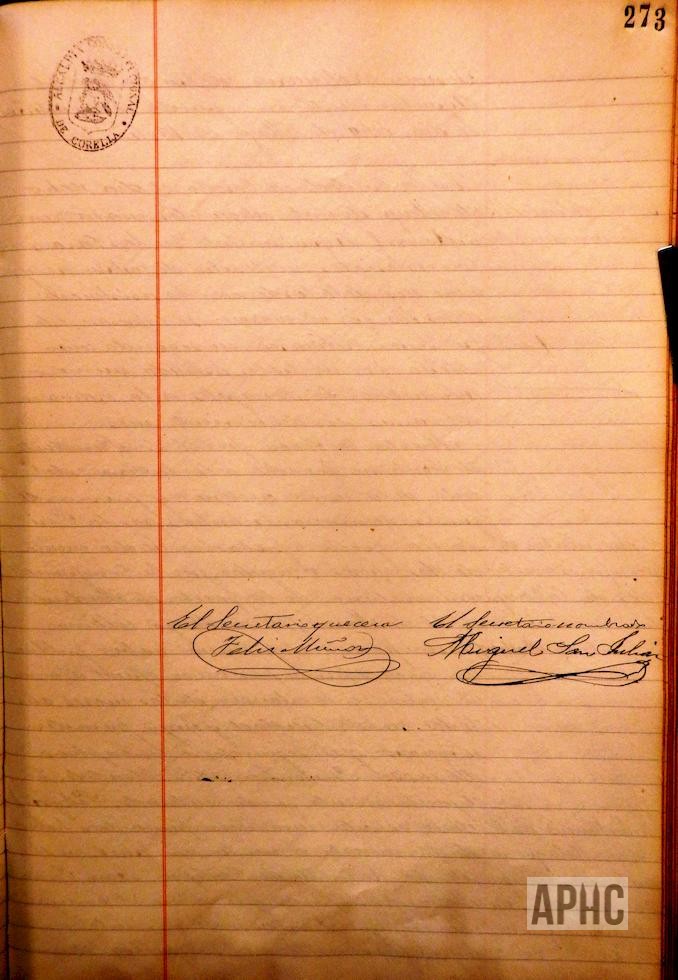 273
ALCALDIA CONSTITUCIONAL
DE CORELLA
El Secretario que cesa
Felix Muñoz
El Secretario nombrado
Miguel San Julián
APHC